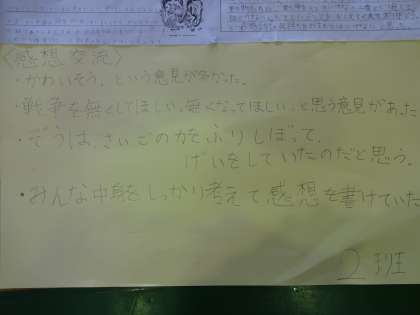 〈感想交流〉
・かわいそう。という意見が多かった。
・戦争を無くしてほしい。無くなってほしい。と思う意見があった
・ぞうは、さいごの力をふりしぼって、
げいをしていたのだと思う。
・みんな中身をしっかり考えて感想を書けていた
2班